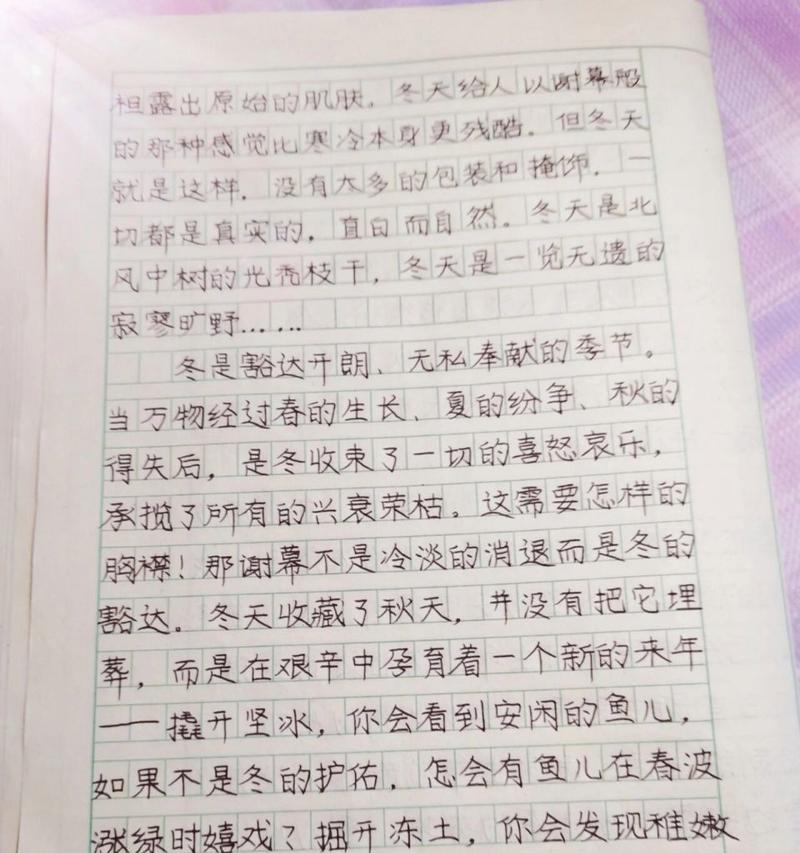 袒露出原始的肌肤。冬天给人以谢幕般
的那种感觉比寒冷本身更残酷。但冬天
就是这样。没有太多的包装和掩饰。一
切都是真实的，直白而自然。冬天是北
风中树的光秃枝干，冬天是一览无遗的
寂寥旷野……
冬是豁达开朗、无私奉献的季节。
当万物经过春的生长、夏的纷争、秋的
得失后，是冬收束了一切的喜怒哀乐，
承揽了所有的兴衰荣枯。这需要怎样的
胸襟！那谢幕不是冷淡的消退而是冬的
豁达。冬天收藏了秋天，并没有把它埋
葬，而是在艰辛中孕育着一个新的来年
——撬开坚冰，你会看到安闲的鱼儿，
如果不是冬的护佑，怎会有鱼儿在春波
涨绿时嬉戏？掘开冻土，你会发现稚嫩